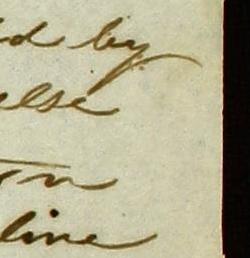 d by
else
n
line